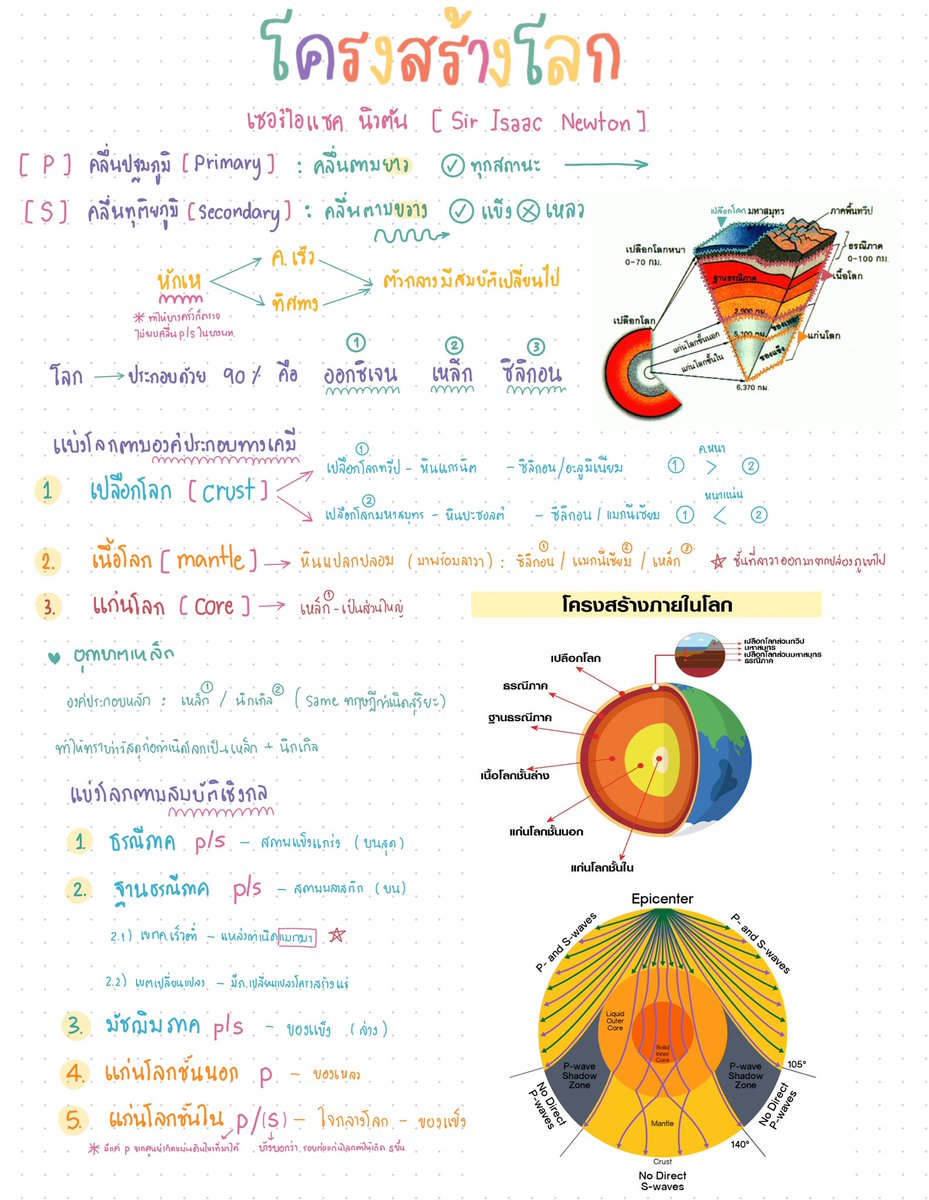 โครงสร้างโลก
เซอร์ไอแซค นิวตัน [ Sir Isaac Newton ]
[ P ] คลื่นปฐมภูมิ [ Primary ] : คลื่นตามยาว ✓ ทุกสถานะ →
[ S ] คลื่นทุติยภูมิ [ Secondary ] : คลื่นตามขวาง ✓ แข็ง ✗ เหลว
หักเห
ค.เร็ว
ทิศทาง
ตัวกลางมีสมบัติเปลี่ยนไป
* ทำให้บางครั้งก็ตรวจ
ไม่พบคลื่น p/s ในบางพท.
เปลือกโลก มหาสมุทร
ภาคพื้นทวีป
เปลือกโลกหนา
0-70 กม.
ธรณีภาค
0-100 กม.
เนื้อโลก
ฐานธรณีภาค
2,900 กม.
5,100 กม.
ของเหลว
แก่นโลก
ของแข็ง
เปลือกโลก
แก่นโลกชั้นนอก
แก่นโลกชั้นใน
6,370 กม.
โลก → ประกอบด้วย 90% คือ ① ออกซิเจน ② เหล็ก ③ ซิลิกอน
แบ่งโลกตามองค์ประกอบทางเคมี
1 เปลือกโลก [ crust ]
① เปลือกโลกทวีป - หินแกรนิต - ซิลิกอน/อะลูมิเนียม ค.หนา ① > ②
② เปลือกโลกมหาสมุทร - หินบะซอลต์ - ซิลิกอน / แมกนีเซียม หนาแน่น ① < ②
2. เนื้อโลก [ mantle ] → หินแปลกปลอม (มาพร้อมลาวา) : ซิลิกอน① / แมกนีเซียม② / เหล็ก③ ☆ ชั้นที่ลาวาออกมาตามปล่องภูเขาไฟ
3. แก่นโลก [ core ] → เหล็ก① - เป็นส่วนใหญ่
♥ อุกกาบาตเหล็ก
องค์ประกอบหลัก : เหล็ก① / นิกเกิล② ( Same ทฤษฎีกำเนิดสุริยะ)
ทำให้ทราบว่าวัสดุก่อกำเนิดโลกเป็นเหล็ก + นิกเกิล
แบ่งโลกตามสมบัติเชิงกล
1. ธรณีภาค p/s - สภาพแข็งแกร่ง (บนสุด)
2. ฐานธรณีภาค p/s - สภาพพลาสติก (บน)
2.1) เขตค.เร็วต่ำ - แหล่งกำเนิดแมกมา ☆
2.2) เขตเปลี่ยนแปลง - มีก.เปลี่ยนแปลงโครงสร้างแร่
3. มัชฌิมภาค p/s - ของแข็ง (ล่าง)
4. แก่นโลกชั้นนอก p - ของเหลว
5. แก่นโลกชั้นใน p/(s) - ใจกลางโลก - ของแข็ง
* มีแค่ p จากศูนย์เกิดแผ่นดินไหวที่มาได้ บ้างบอกว่า รอยต่อแก่นโลกทำให้เกิด s ขึ้น
โครงสร้างภายในโลก
เปลือกโลกส่วนทวีป
มหาสมุทร
เปลือกโลกส่วนมหาสมุทร
ธรณีภาค
เปลือกโลก
ธรณีภาค
ฐานธรณีภาค
เนื้อโลกชั้นล่าง
แก่นโลกชั้นนอก
แก่นโลกชั้นใน
Epicenter
P- and S-waves
P- and S-waves
Liquid
Outer
Core
Solid
Inner
Core
P-wave
Shadow
Zone
P-wave
Shadow
Zone
105°
No Direct
P-waves
No Direct
P-waves
Mantle
140°
Crust
No Direct
S-waves